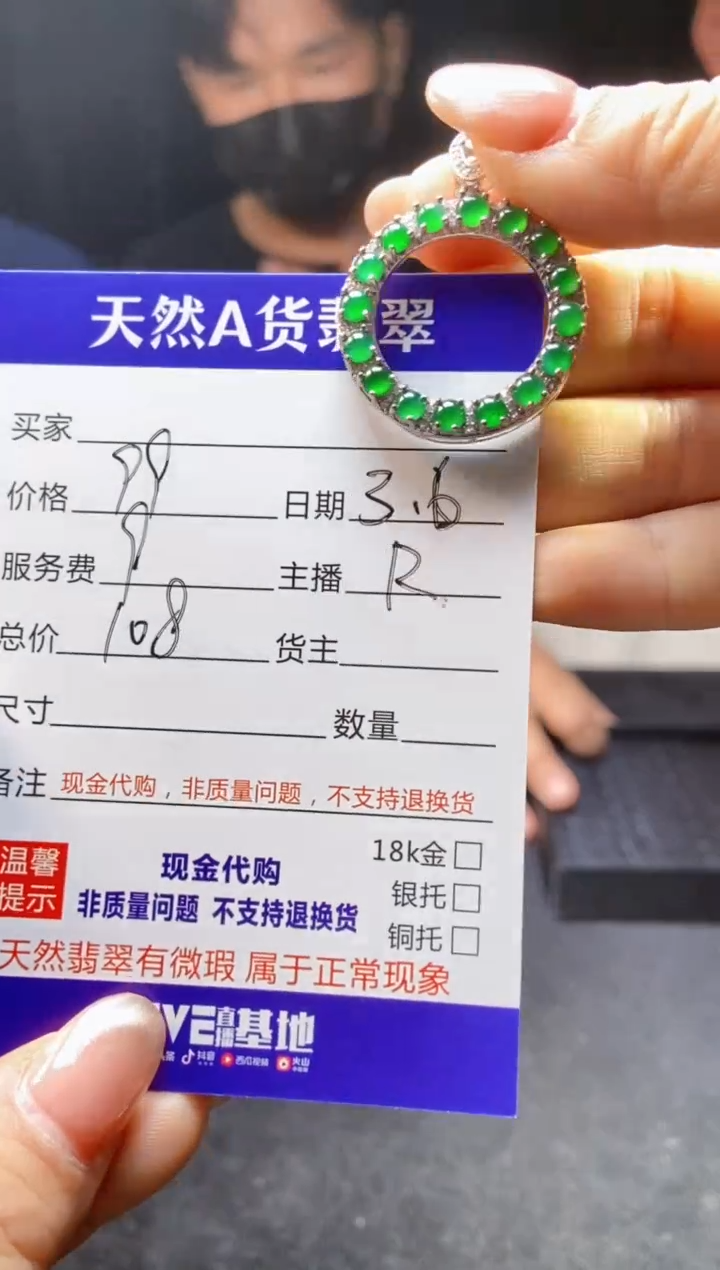 天然A货翡翠
买家
价格 99 日期 3.6
服务费 9 主播 R
总价 108 货主
尺寸 数量
备注 现金代购，非质量问题，不支持退换货
温馨提示
现金代购
非质量问题 不支持退换货
18k金
银托
铜托
天然翡翠有微瑕 属于正常现象
直播基地
抖音 西瓜视频 火山